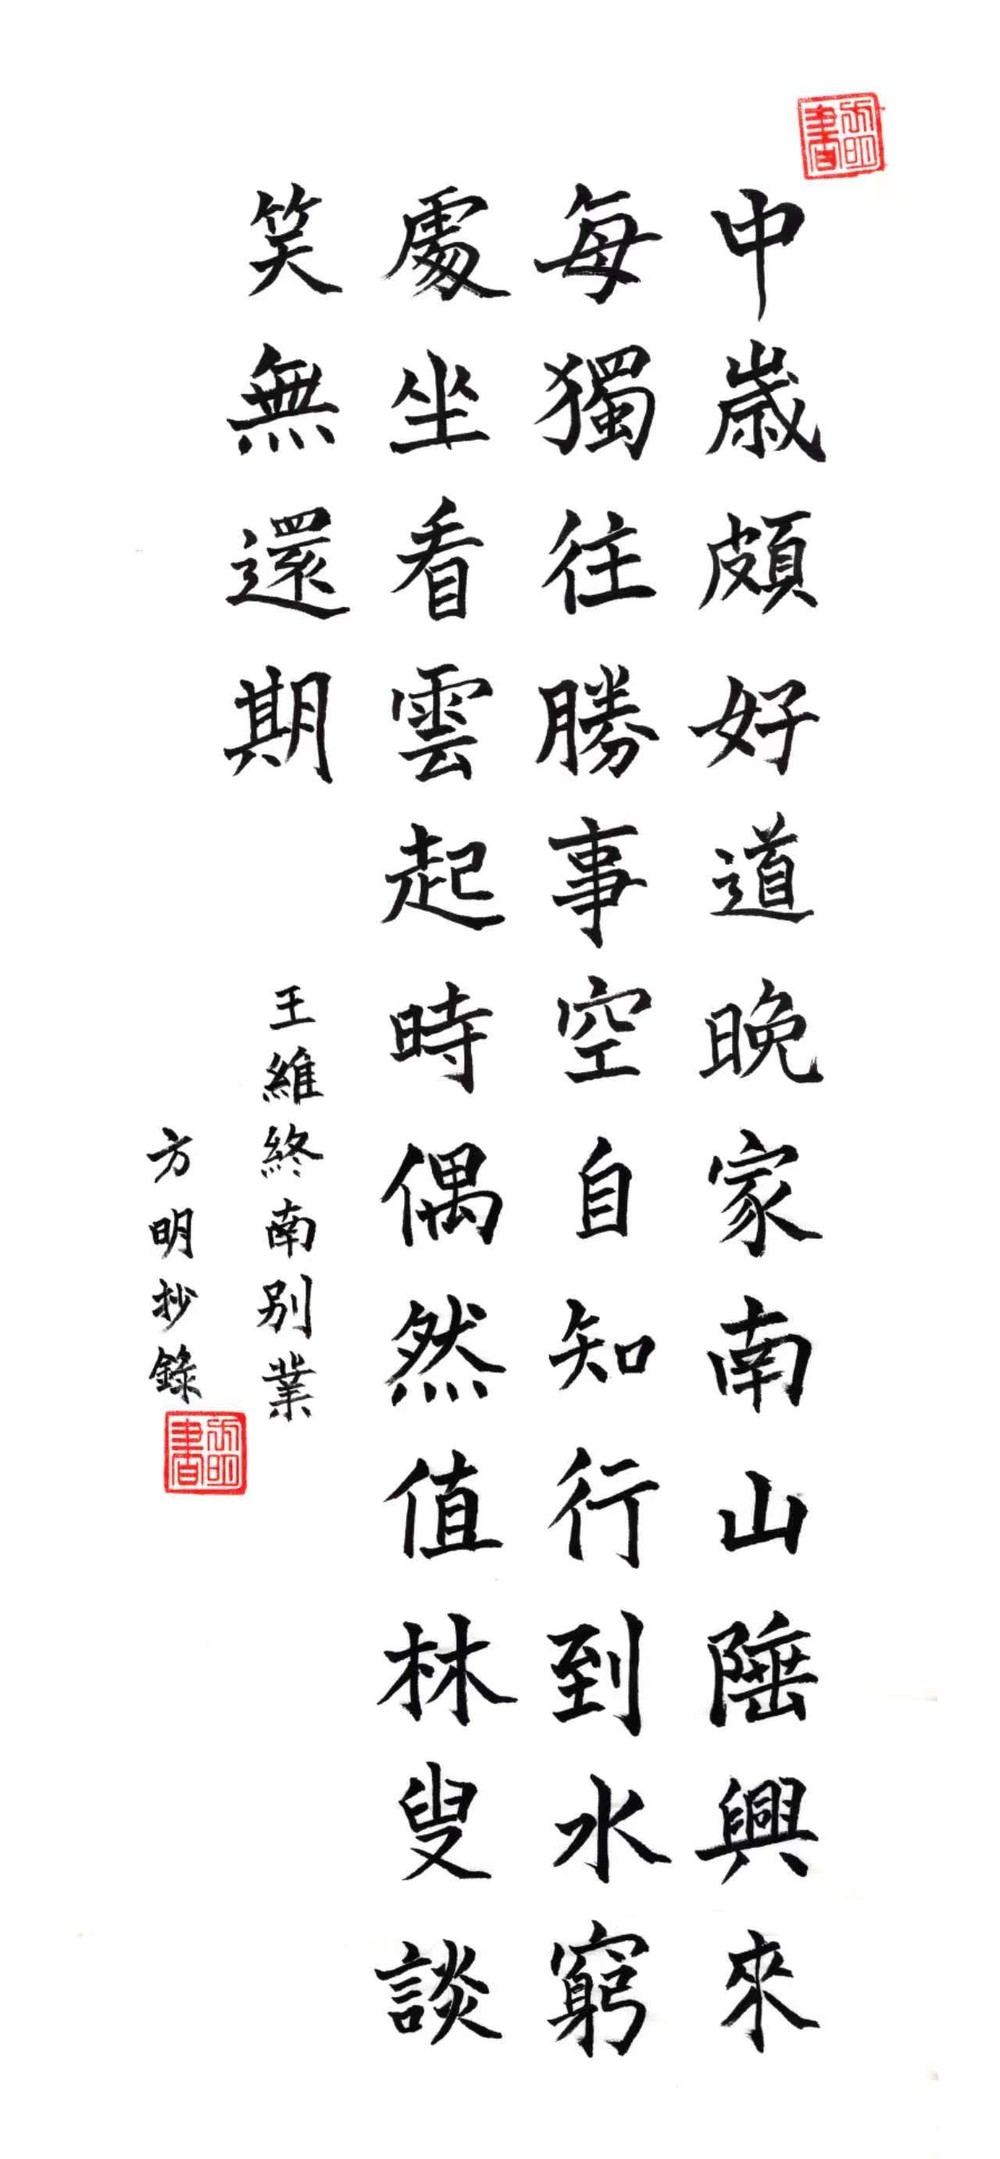 中歲頗好道晚家南山陲興來
每獨往勝事空自知行到水窮
處坐看雲起時偶然值林叟談
笑無還期
王維終南別業
方明抄錄